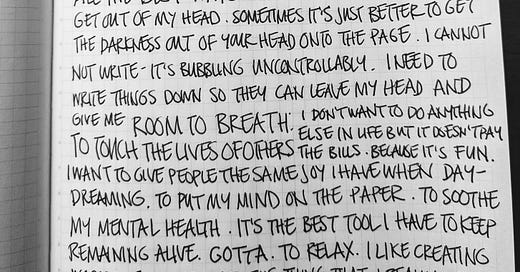 GET OUT OF MY HEAD. SOMETIMES IT'S JUST BETTER TO GET
THE DARKNESS OUT OF YOUR HEAD ONTO THE PAGE. I CANNOT
NOT WRITE - IT'S BUBBLING UNCONTROLLABLY. I NEED TO
WRITE THINGS DOWN SO THEY CAN LEAVE MY HEAD AND
GIVE ME ROOM TO BREATH. I DON'T WANT TO DO ANYTHING
ELSE IN LIFE BUT IT DOESN'T PAY
TO TOUCH THE LIVES OF OTHERS THE BILLS. BECAUSE IT'S FUN.
I WANT TO GIVE PEOPLE THE SAME JOY I HAVE WHEN DAY-
DREAMING. TO PUT MY MIND ON THE PAPER. TO SOOTHE
MY MENTAL HEALTH. IT'S THE BEST TOOL I HAVE TO KEEP
REMAINING ALIVE. GOTTA. TO RELAX. I LIKE CREATING